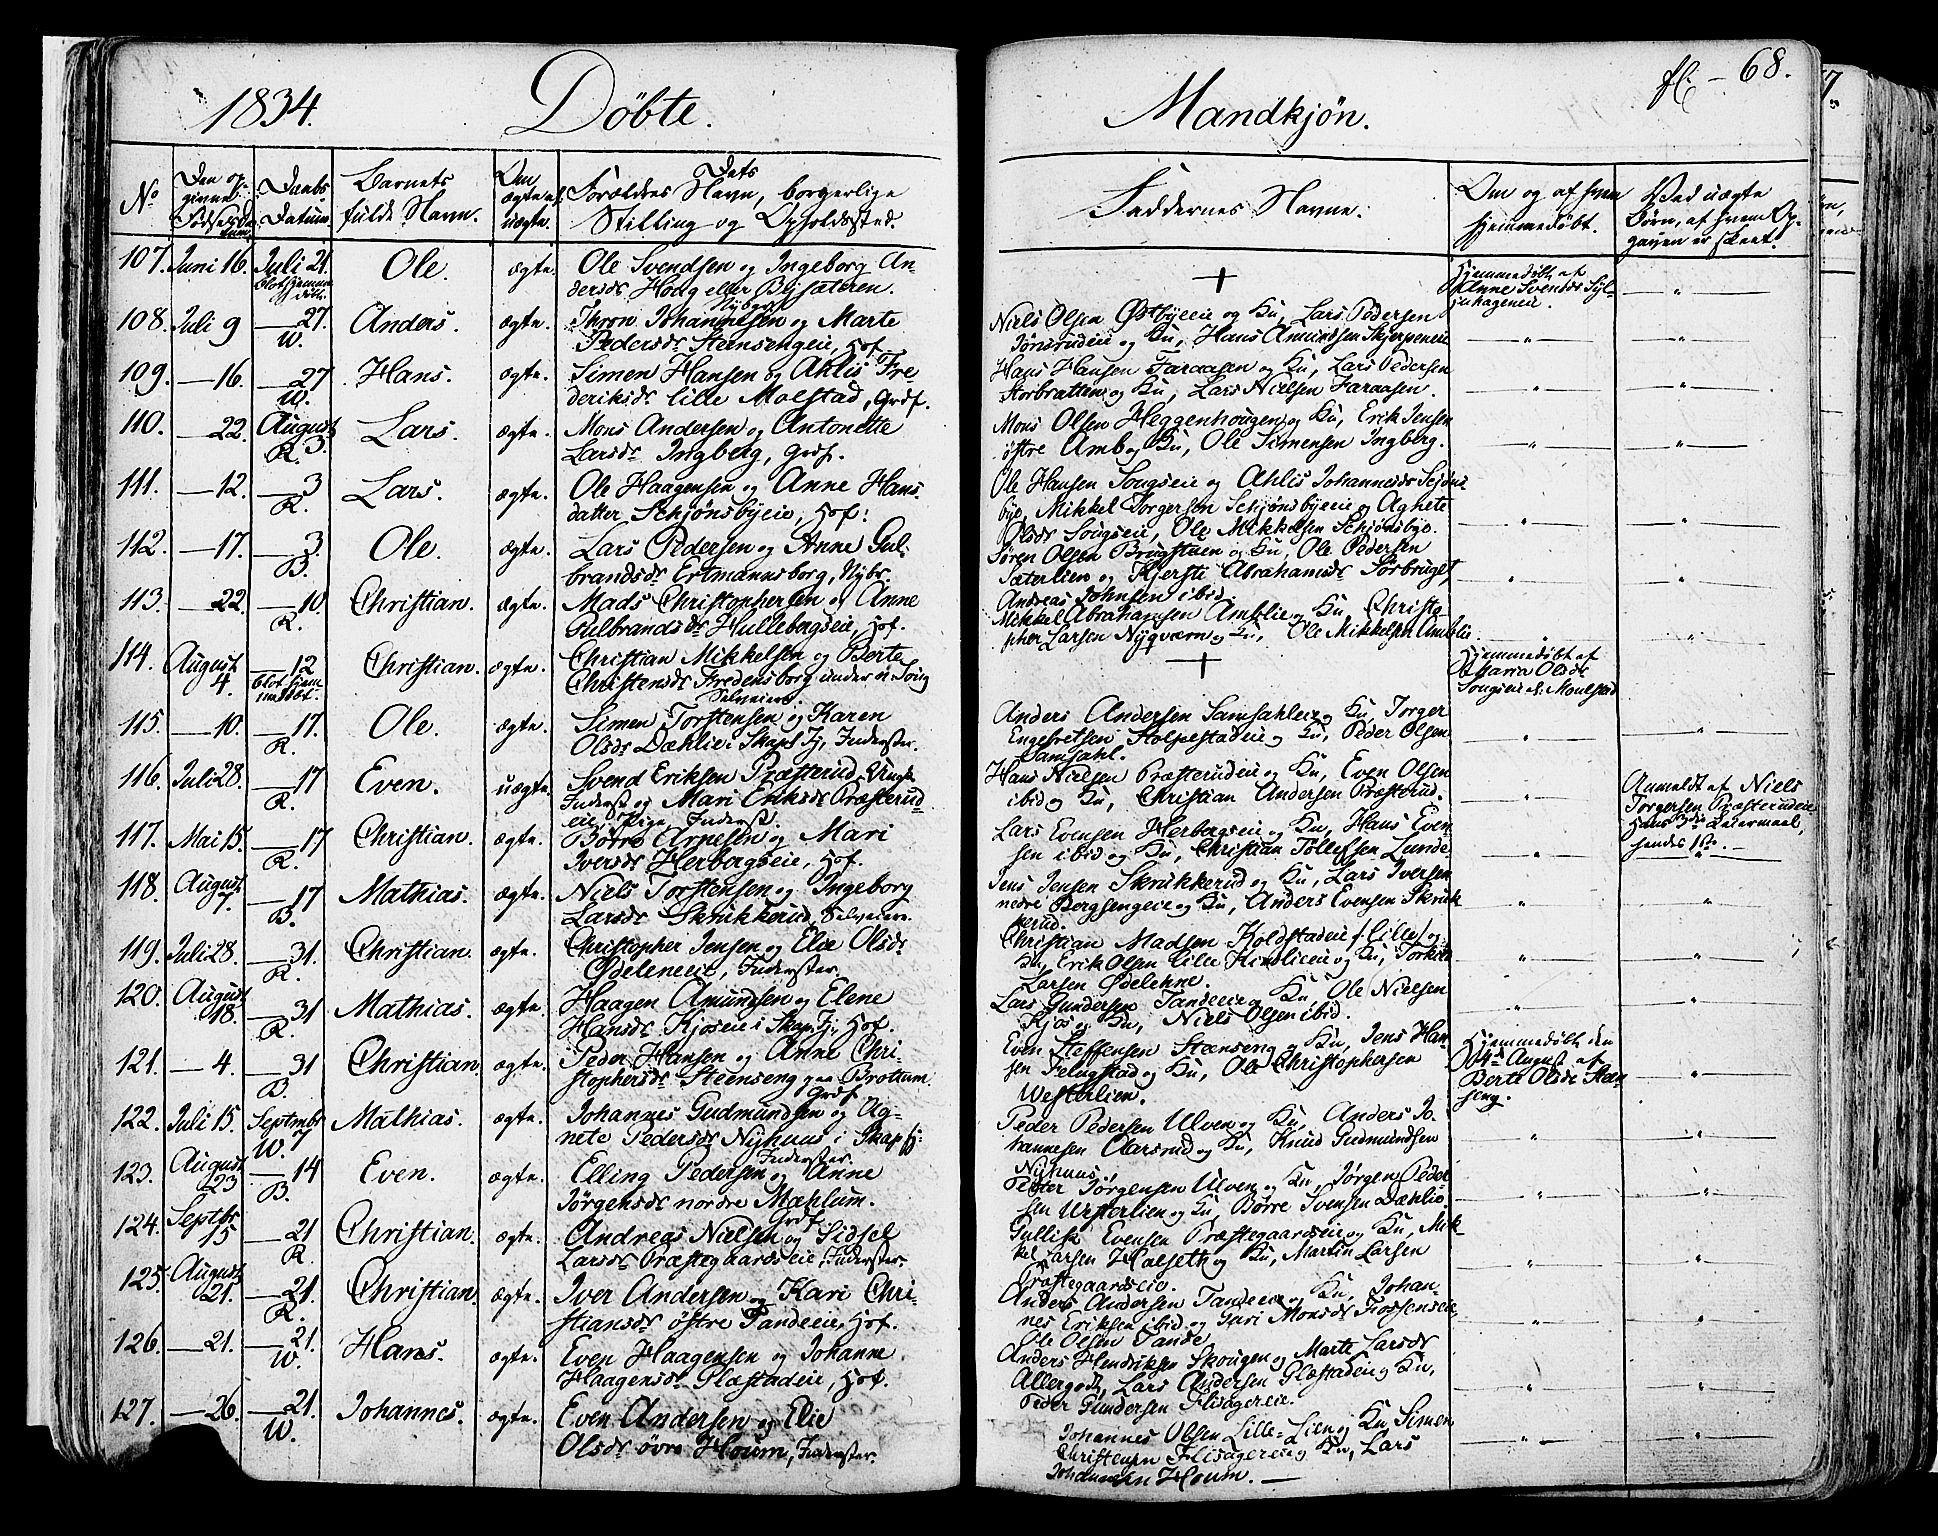 1834. Døbte.
Mandkjøn.
fl. - 68.
No
Den op-
givne
Fødselsda-
tum.
Daabs
Datum.
Barnets
fulde Navn.
Om
ægte el.
uægte.
Dets
Forældres Navn, borgerlige
Stilling og Opholdssted.
Faddernes Navne.
Om og af hvem
hjemmedøbt.
Ved uægte
Børn, af hvem Op-
gaven er skeet.
107. Juni 16. Juli 21. Ole. ægte. Ole Svendsen og Ingeborg An-
blot hjemme
døbt.
dersdr Houg eller Bejsæteren.
+
Hjemmedøbt af
Anne Svensdr
108. Juli 9 — 27. Anders. ægte. Thron Johannesen og Marte
W.
Pedersdr Steensengeie, Hof.
Niels Olsen Østbyeie og Ku, Lars Pedersen
Jønsrudeie og Ku, Hans Amundsen Skjerpeneie
109. — 16. — 27 Hans. ægte. Simen Hansen og Ahlis Fre
W.
deriksdr Lille Molstad, Grdf.
Hans Hansen Faraasen og Ku, Lars Pedersen
Storbratten og Ku, Lars Nielsen Faraasen.
110. — 22. August 3. Lars. ægte. Mons Andersen og Antonette
R.
Larsdr Ingberg, Grdf.
Mons Olsen Heggenhougen og Ku, Erik Jensen
østre Amb og Ku, Ole Simensen Ingberg.
111. — 12. — 3 Lars. ægte. Ole Haagensen og Anne Hans
R.
datter Schjønsbyeie, Hof.
Ole Hansen Sougseie og Ahlis Johannesdr
bye, Mikkel Torgersen Schjønsbyeie og Aghete
Olsdr Sougseie, Ole Mikkelsen Schjønsbye.
112. — 17. — 3. Ole. ægte. Lars Pedersen og Anne Gul-
B.
brandsdr Ertmannsborg, Nybr.
Søren Olsen Brugstuen og Ku, Ole Pedersen
Sæterlien og Kjersti Abrahamsdr Sørbruget,
Andreas Johnsen ibid.
113. — 22. — 10. Christian. ægte. Mads Christophersen og Anne
R.
Gulbrandsdr Hullebergseie, Hof.
Mikkel Abrahamsen Amblie og Ku, Christo
pher Larsen Nyqværn og Ku, Ole Mikkelsen Amblie.
114. August 4. — 12 Christian. ægte. Christian Mikkelsen og Berte
blot hjem-
medøbt.
Christensdr Fredensborg under n. Soug
Selveiere.
+
Hjemmedøbt af
Maria Olsdr
Sougseie
115. — 10. — 17. Ole. ægte. Simen Torstensen og Karen
R.
Olsdr Dæhlie i Skaps Fj, Inderster.
Anders Andersen Samsahleie og Ku, Torger
Engebretsen Kolpestadeie og Ku, Peder Olsen
Samsahl.
116. Juli 28. — 17 Even. uægte. Svend Eriksen Præsterud, Ungk
R.
Inderst og Mari Eriksdr Præsterud
eie, Pige, Inderst.
Hans Nielsen Præsterudeie og Ku, Even Olsen
ibid og Ku, Christian Andersen Præsterud.
Anmeldt af Niels
Torgersen Præsterudeie
Hans 3die Leiermaal,
hendes 1ste. —
117. Mai 15. — 17 Christian. ægte. Børre Arnesen og Mari
R.
Iversdr Herbergseie, Hof.
Lars Evensen Herbergseie og Ku, Hans Even-
sen ibid og Ku, Christian Tollefsen Lunde-
118. August 7. — 17 Mathias. ægte. Niels Torstensen og Ingeborg
B.
Larsdr Skrukkerud, Selveiere.
Jens Jensen Skrukkerud og Ku, Lars Iversen
nedre Bergsengeie og Ku, Anders Evensen Skruk
kerud.
119. Juli 28. — 31. Christian. ægte. Christopher Jensen og Elie Olsdr
R.
Ødeleneeie, Inderster.
Christian Madsen Koldstadeie (Lille) og
Ku, Erik Olsen Lille Kindlieeie og Ku,
Larsen Ødelehne.
120. August 18. — 31 Mathias. ægte. Haagen Amundsen og Elene
R.
Hansdr Kjoseie i Skaps Fj, Hof.
Lars Gundersen Tandeeie og Ku, Ole Nielsen
Kjos og Ku, Niels Olsen ibid.
121. — 4. — 31 Christian. ægte. Peder Hansen og Anne Chri-
B.
stophersdr Steenseng paa Brottum.
Grdf.
Even Steffensen Steenseng og Ku, Jens Han-
sen Felugstad og Ku, Ole Christophersen
Westerlien.
Hjemmedøbt den
4de August af
Berte Olsdr Steen-
seng.
122. Juli 15. Septmbr 7 Mathias. ægte. Johannes Gudmundsen og Ag-
W.
nete Pedersdr Nyhuus i Skaps Fj.
Inderster.
Peder Pedersen Ulven og Ku, Anders Jo-
hannesen Aarsrud og Ku, Knud Gudmundsen
Nyhuus.
123. August 23 — 14 Even. ægte. Elling Pedersen og Anne
B.
Jørgensdr nordre Mæhlum.
Grdf.
Peder Jørgensen Ulven og Ku, Jørgen Peder-
sen Westerlien og Ku, Børre Svensen Dæhlie.
124. Septbr 15 — 21 Christian. ægte. Andreas Nielsen og Sidsel
R.
Larsdr Præstegaardseie, Inderster.
Gullik Evensen Præstegaardseie og Ku, Mik-
kel Larsen Halseth og Ku, Martin Larsen
Præstegaardseie.
125. August 21. — 21. Christian. ægte. Iver Andersen og Kari Chri-
R.
stiansdr østre Tandeeie, Hof.
Anders Andersen Tandeeie og Ku, Johan-
nes Eriksen ibid og Guri Monsdr
Ole Olsen Tande.
126. — 21. — 21. Hans. ægte. Even Haagensen og Johanne
W.
Haagensdr Glæstadeie, Hof.
Anders Hendriksen Skougen og Marte Larsdr
Allergodt, Lars Andersen Glæstadeie og Ku,
Peder Gundersen Flisageeie.
127. — 26. — 21. Johannes. ægte. Even Andersen og Elie
W.
Olsdr øvre Houm, Inderster.
Johannes Olsen Lille-Lien og Ku, Simen
Christensen Flisageeie og Ku, Lars
Johannesen Houm. —